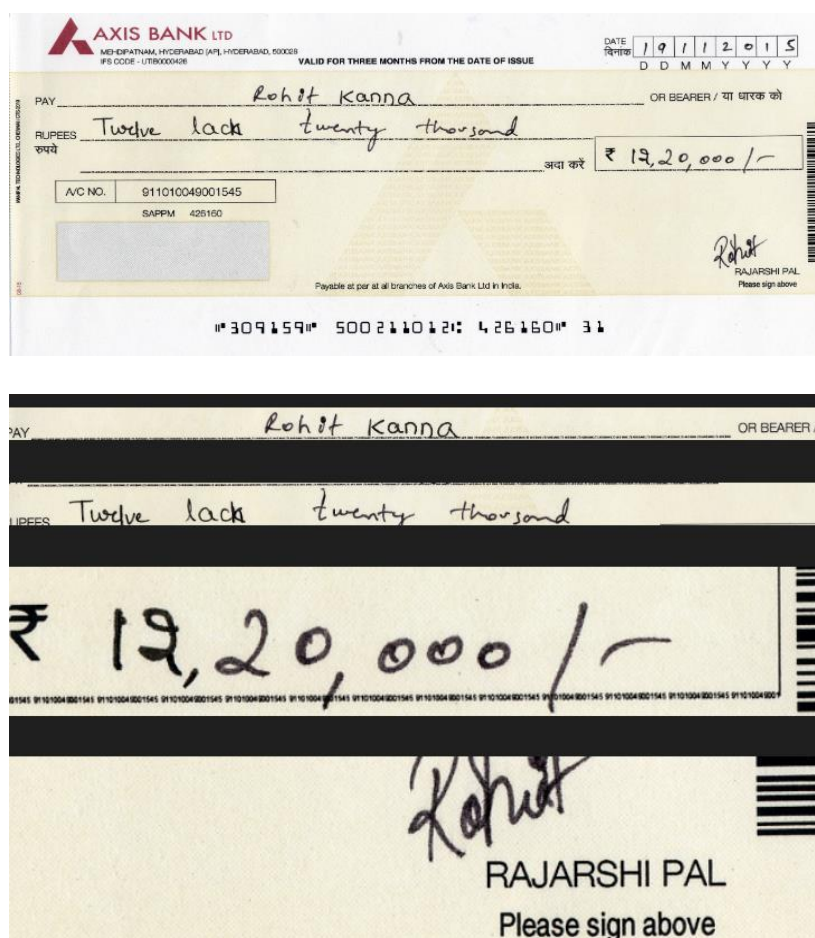 AXIS BANK LTD
MEHDIPATNAM, HYDERABAD [AP], HYDERABAD, 500028
IFS CODE - UTIB0000426
VALID FOR THREE MONTHS FROM THE DATE OF ISSUE
DATE दिनांक 1 9 1 1 2 0 1 5
D D M M Y Y Y Y
PAY Rohit Kanna OR BEARER / या धारक को
RUPEES रुपये Twelve lack twenty thousand
अदा करें ₹ 12,20,000/-
A/C NO. 911010049001545
SAPPM 426160
Rohit
RAJARSHI PAL
Please sign above
Payable at par at all branches of Axis Bank Ltd in India.
⑈309159⑈ 500211012⑆ 426160⑈ 31
PAY Rohit Kanna OR BEARER /
UPEES Twelve lack twenty thousand
₹ 12,20,000/-
Rohit
RAJARSHI PAL
Please sign above